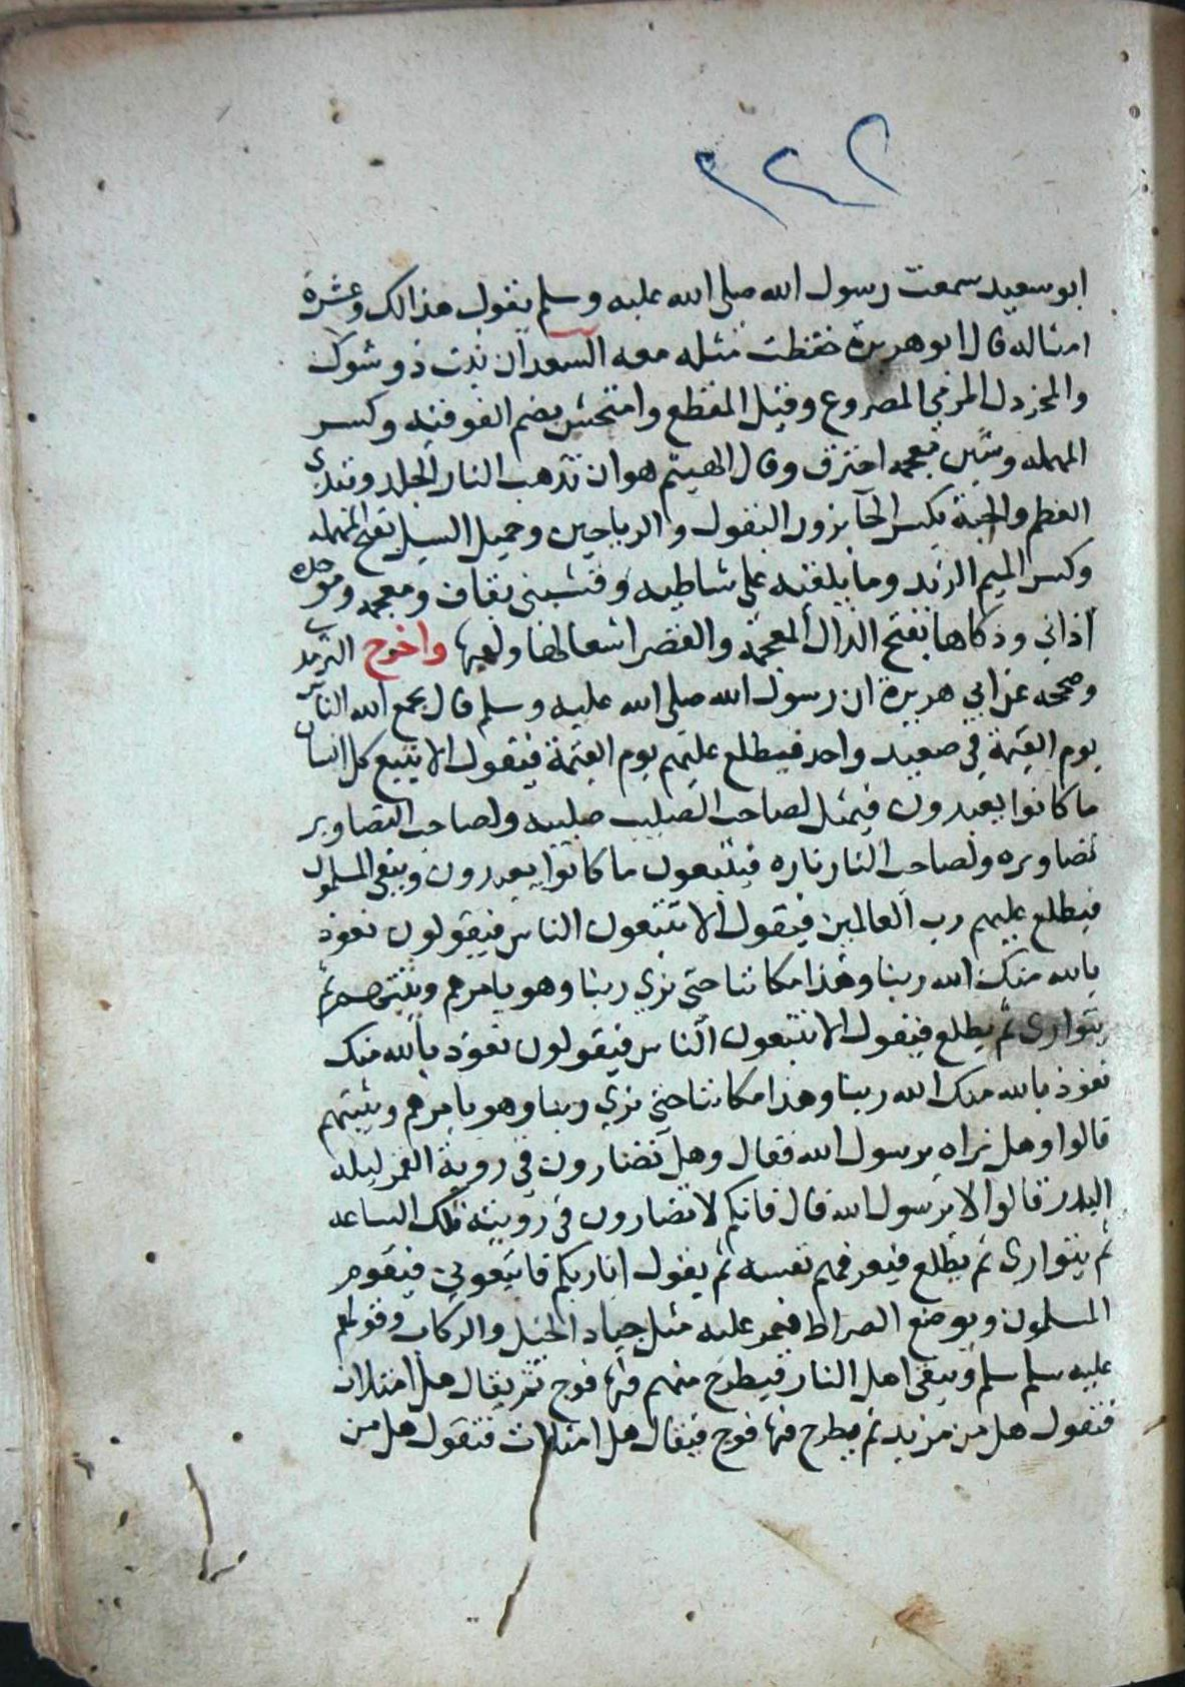 ٢٢٢
ابو سعيد سمعت رسول الله صلى الله عليه وسلم يقول هذا لك وعشرة
امثاله قال ابو هريرة حفظت مثله معه السعدان نبت ذو شوك
والمخردل المرمي المصروع وقيل المقطع وامتحش بضم الفوقيه وكسر
المهمله وشين معجمه احترق وقال الهيتم هو ان تذهب النار الجلد وتبدي
العظم والحبة بكسر الحآ بزور البقول والرياحين وحميل السيل بفتح المهمله
وكسر الميم الزبد وما يلقيه على شاطيه وقشبني بقاف ومعجمه وموحده
اذاني وذكاها بفتح الذال المعجمة والقصر اشعالها ولهبها واخرج الترمذي
وصححه عن ابي هريرة ان رسول الله صلى الله عليه وسلم قال يجمع الله الناس
يوم القيمة في صعيد واحد فيطلع عليهم يوم القيمة فيقول الا يتبع كل انسان
ما كانوا يعبدون فيمثل لصاحب الصليب صليبه ولصاحب التصاوير
تصاويره ولصاحب النار ناره فيتبعون ما كانوا يعبدون ويبقى المسلمون
فيطلع عليهم رب العالمين فيقول الا تتبعون الناس فيقولون نعوذ
بالله منك الله ربنا وهذا مكاننا حتى نري ربنا وهو يامرهم ويثبتهم ثم
يتوارى ثم يطلع فيقول الا تتبعون الناس فيقولون نعوذ بالله منك
نعوذ بالله منك الله ربنا وهذا مكاننا حتى نري ربنا وهو يامرهم ويثبتهم
قالوا وهل نراه يرسول الله فقال وهل تضارون في روية القمر ليله
البدر قالوا لا يرسول الله قال فانكم لا تضارون في رويته تلك الساعه
ثم يتوارى ثم يطلع فيعرفهم نفسه ثم يقول انا ربكم فاتبعوني فيقوم
المسلمون ويوضع الصراط فيمر عليه مثل جياد الخيل والركاب وقولهم
عليه سلم سلم ويبقى اهل النار فيطرح منهم فيها فوج ثم يقال هل امتلات
فتقول هل من مزيد ثم يطرح فيها فوج فيقال هل امتلات فتقول هل من